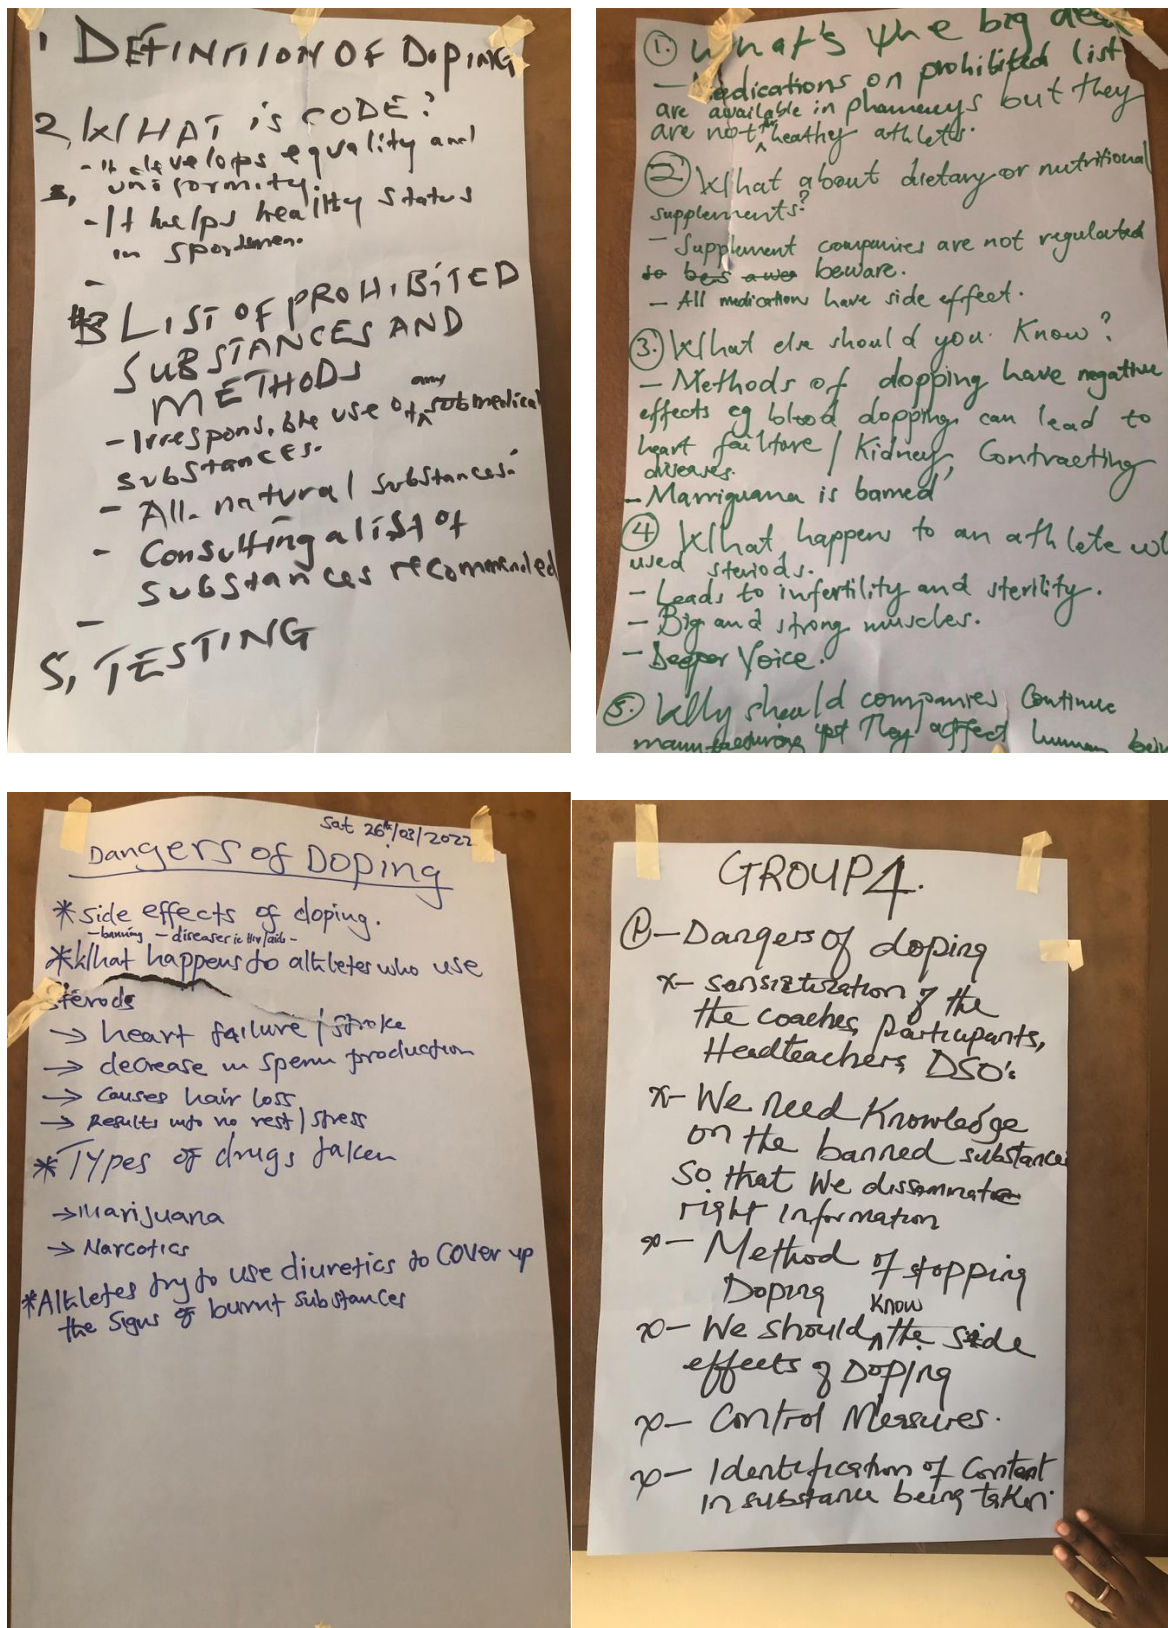 1 DEFINITION OF DOPING
2, WHAT is CODE?
- It develops equality and
uniformity.
- It helps healthy status
in sportsmen.
-
3 LIST OF PROHIBITED
SUBSTANCES AND
METHODS
any
- Irresponsible use of medical
substances.
- All natural substances.
- Consulting a list of
substances recommended
-
5, TESTING
1. What's the big deal
- Medications on prohibited list
are available in phamacys but they
are not heathy athlets.
2 What about dietary or nutritional
supplements?
- Supplement companies are not regulated
beware.
- All medication have side effect.
3. What else should you Know?
- Methods of dopping have negative
effects eg blood dopping can lead to
heart failture / Kidney, Contracting
diseases.
- Marriguana is banned
4 What happens to an athlete
used steriods.
- Leads to infertility and sterility.
- Big and strong muscles.
- Deeper Voice.
5. Why should companies Continue
manufacturing yet They affect human
Sat 26th/03/2022
Dangers of Doping
* Side effects of doping.
- banning - diseases ie HIV/aids -
* What happens to athletes who use
sterods
→ heart failure / stroke
→ decrease in sperm production
→ Causes hair loss
→ Results into no rest / stress
* Types of drugs taken
→ Marijuana
→ Narcotics
* Athletes try to use diuretics to cover up
the signs of burnt substances
GROUP 4.
- Dangers of doping
x- Sensitization of the
the coaches, participants,
Headteachers, DSO's
x- We need Knowledge
on the banned substance
So that We dissemnate
right Information
x- Method of stopping
Doping
Know
x- We should the side
effects of Doping
x- Control Measures.
x- Identification of Content
in substance being taken.